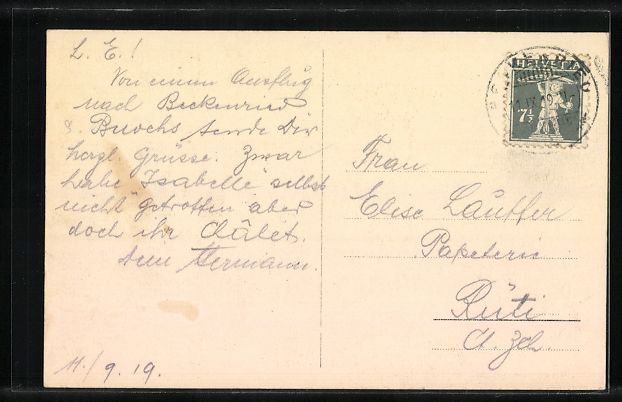 L. E.!
Von einem Ausflug
nach Beckenried
& Buochs sende Dir
herzl. Grüsse. Zwar
habe "Isabelle" selbst
nicht getroffen aber
doch ihr Châlet.
Dein Hermann.
11/9.19.
HELVETIA
7½
BECKENRIED
Frau
Elise Lauffer
Papeterie
Rüti
Ct. Zch.